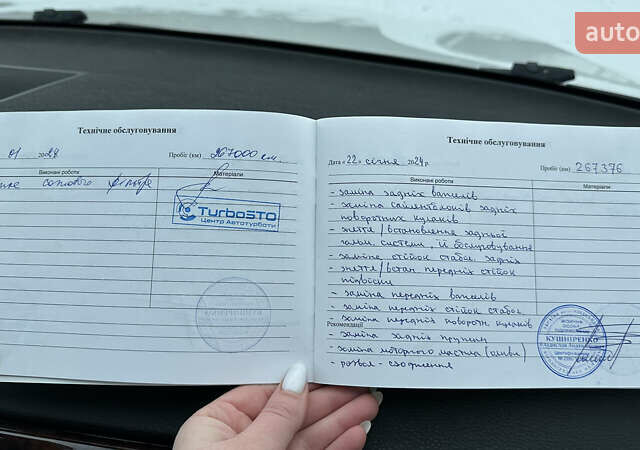 auto
Технічне обслуговування
01 2024
Пробіг (км) 267000 км.
Виконані роботи
Матеріали
салонового фільтра
TurboSTO
Центр Автотурботи
Технічне обслуговування
Дата «22» січня 2024р.
Пробіг (км) 267376
Виконані роботи
Матеріали
- заміна задніх важелів
- заміна сайлентблоків задніх
поворотних кулаків.
- зняття/встановлення задньої
гальм. системи, її обслуговування
- заміна стійок стабіл. задніх
- зняття/встан передніх стійок
підвіски
- заміна передніх важелів
- заміна передніх стійок стабіл.
- заміна передніх поворотн. кулаків
Рекомендації
- заміна задніх пружин
- заміна моторного мастила (оливи)
- розвал-сходження
КУШНІРЕНКО